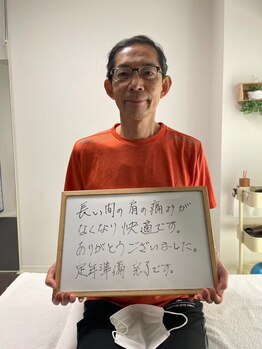 長い間の肩の痛みが
なくなり快適です。
ありがとうございました。
定年準備完了です。